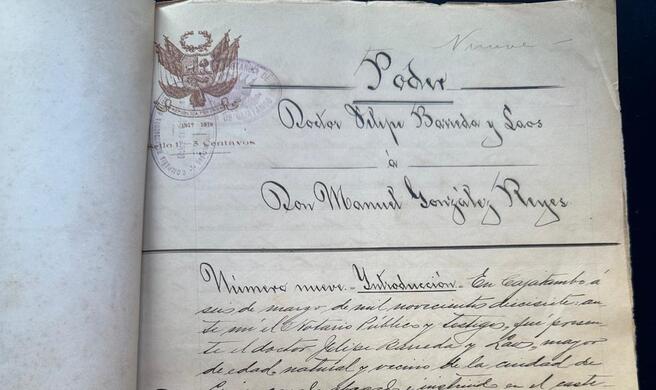 Nueve
Poder
Doctor Felipe Barreda y Laos
á
Don Manuel González Reyes.
REPUBLICA PERUANA
1917 1918
Sello 1º 5 Centavos
Número nueve.- Introducción.- En Cajatambo á
seis de marzo, de mil novecientos diecisiete: an
te mi el Notario Público y testigos, fué presen
te el doctor Felipe Barreda y Laos, mayor
de edad, natural y vecino de la ciudad de